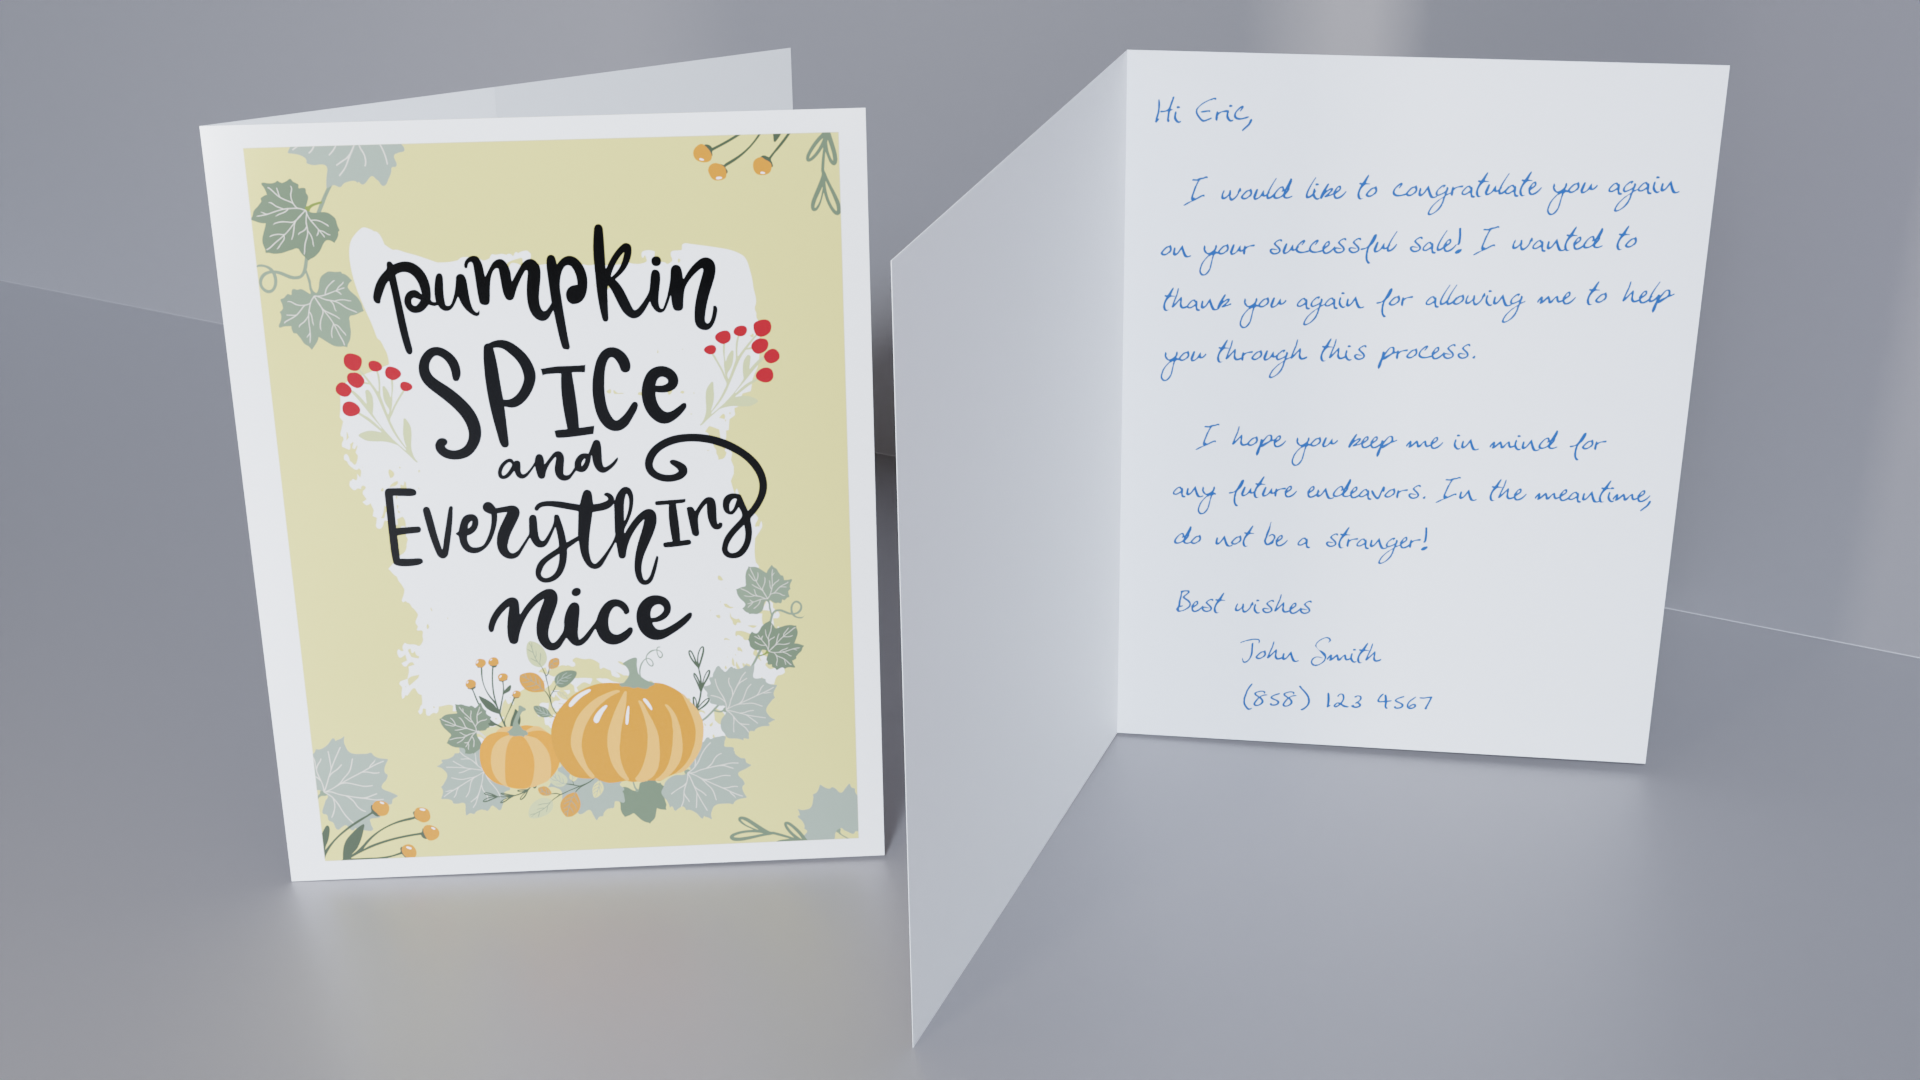 pumpkin
SPICe
and
EverythIng
nice
Hi Eric,
I would like to congratulate you again
on your successful sale! I wanted to
thank you again for allowing me to help
you through this process.
I hope you keep me in mind for
any future endeavors. In the meantime,
do not be a stranger!
Best wishes
John Smith
(858) 123 4567